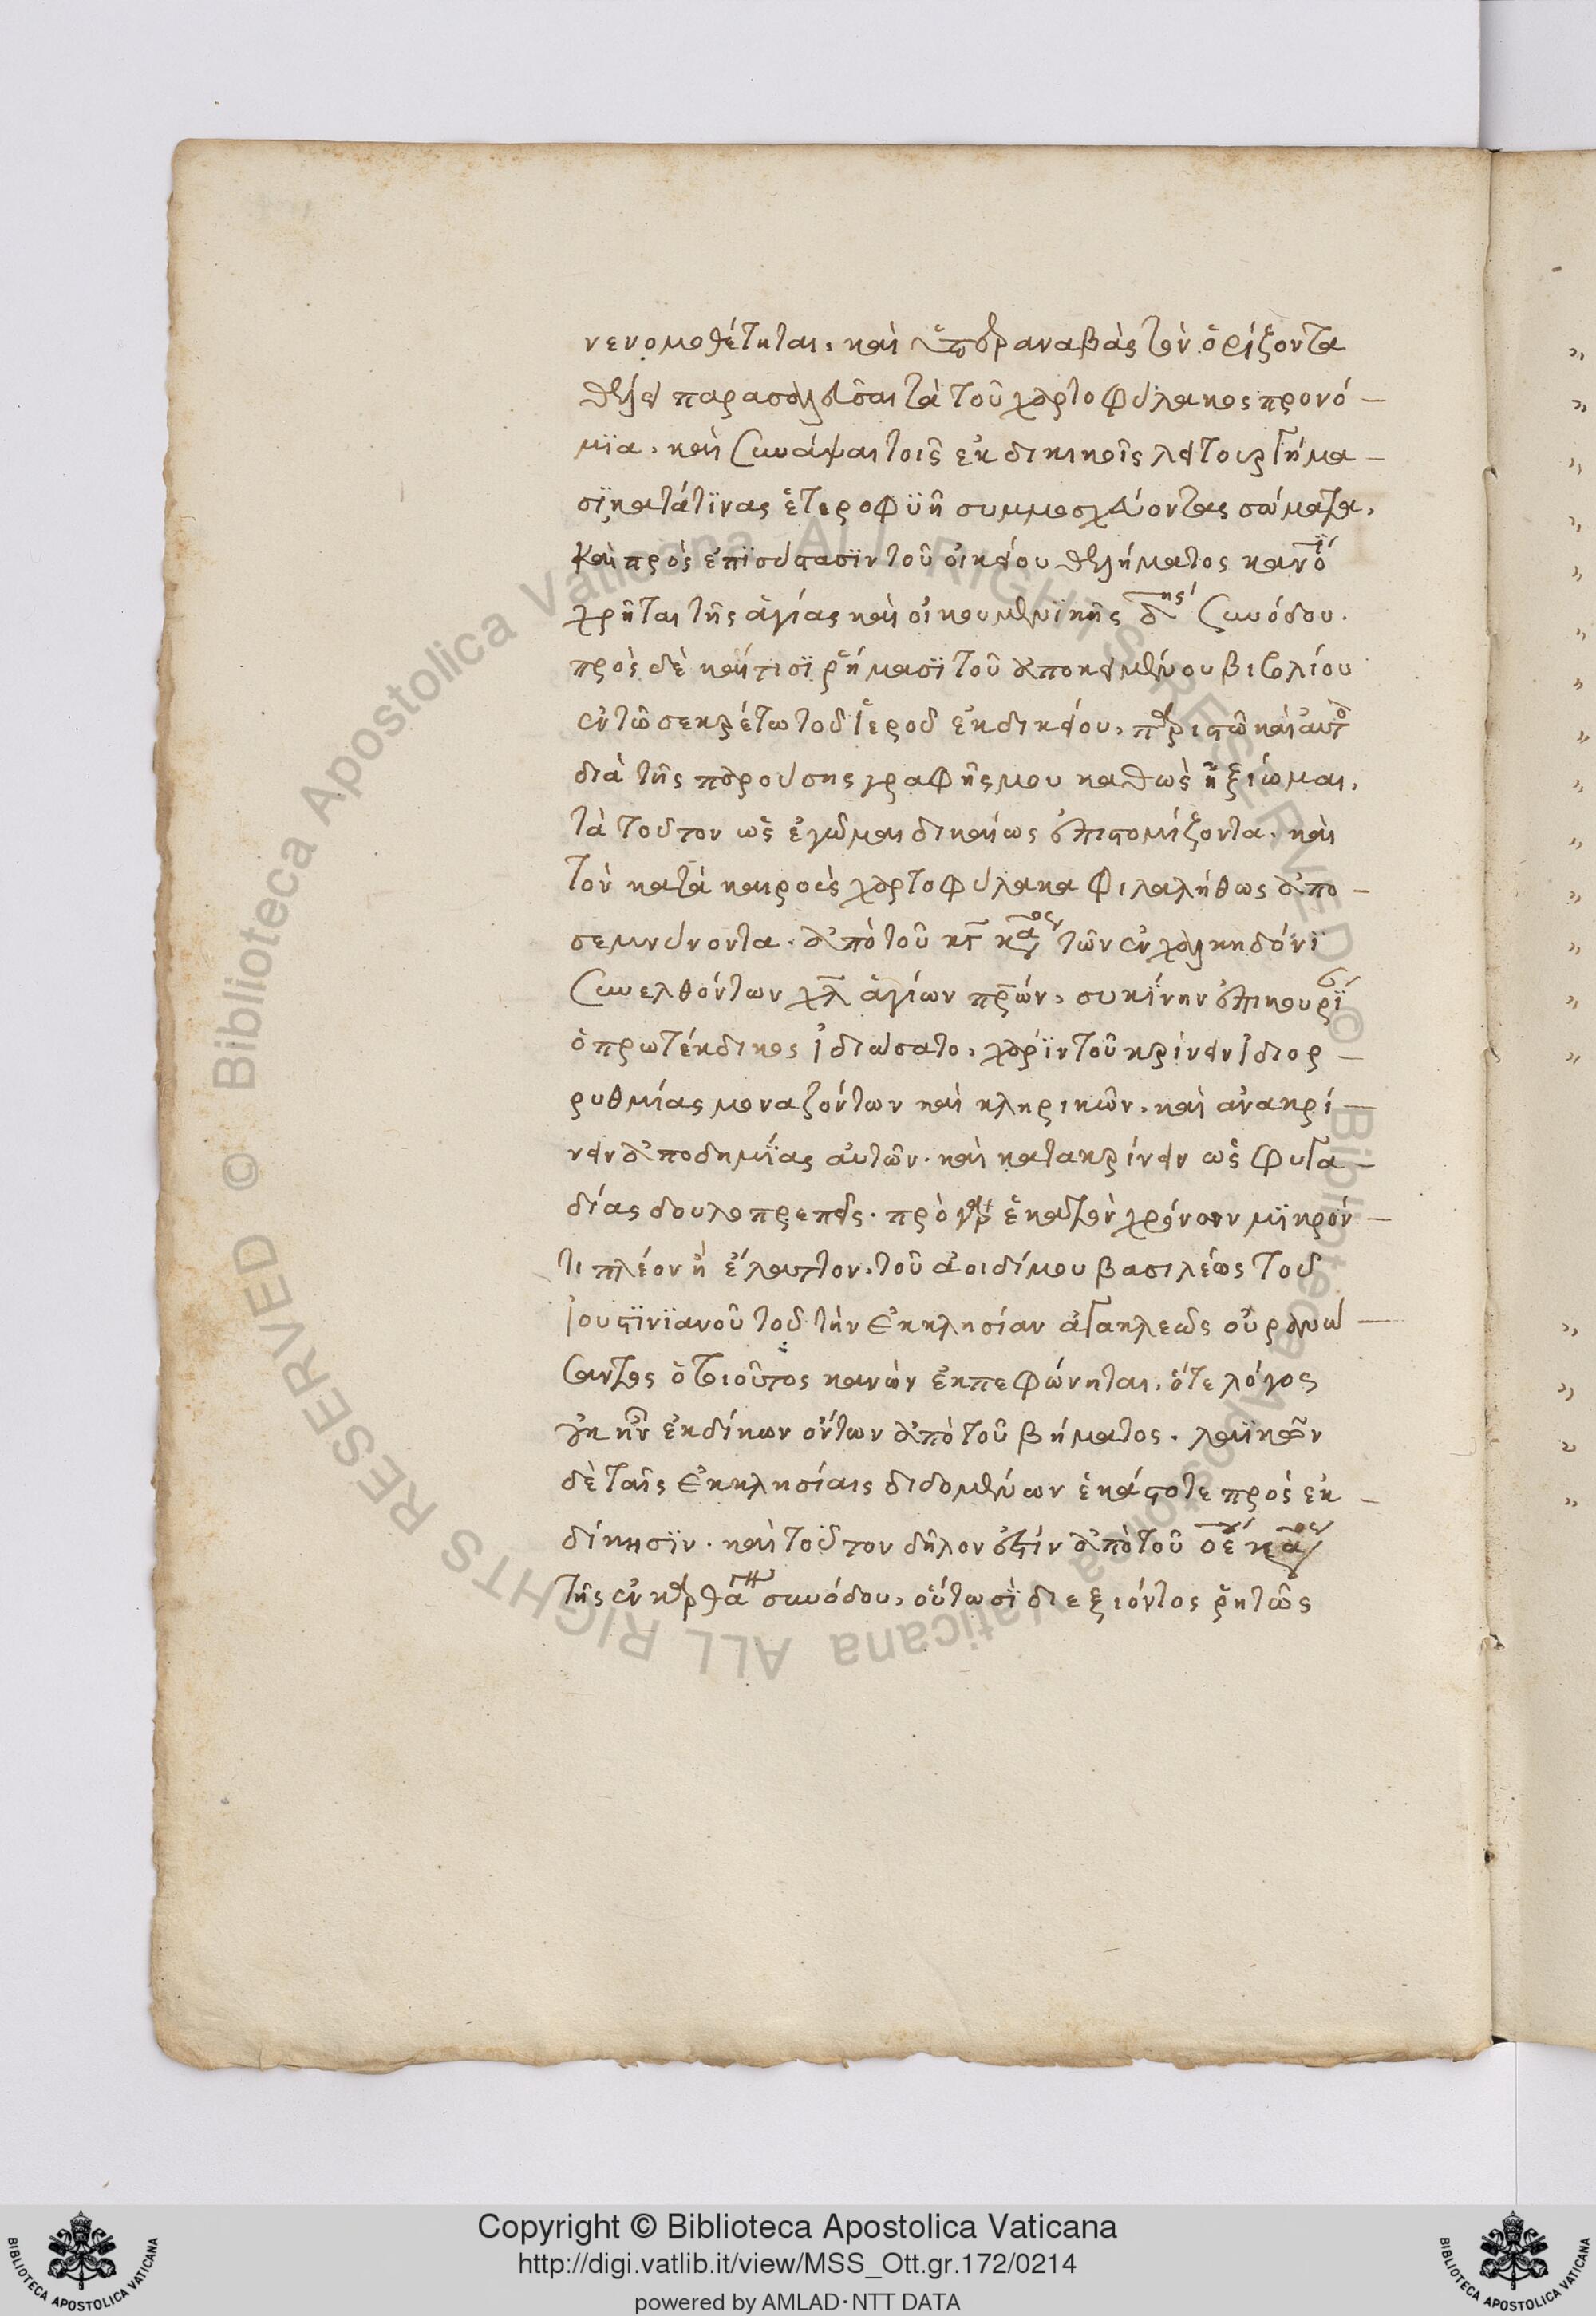 νενομοθέτηται. καὶ ὑπεραναβὰς τὸν ὁρίζοντα
θέλει παρασαλεῦσαι τὰ τοῦ χαρτοφύλακος προνό–
μϊα. καὶ συνάψαι τοῖς ἐκδικικοῖς λειτουργήμα–
σϊ κατά τϊνας ἑτεροφϋῆ συμμοσχεύοντας σώματα.
καὶ πρὸς ἐπϊσύστασϊν τοῦ οἰκείου θελήματος κανόϊ
χρῆται τῆς ἁγίας καὶ οἰκουμενϊκῆς δης συνόδου.
πρὸς δὲ καὶ τισϊ ῥήμασϊ τοῦ ἀποκειμένου βιβλίου
ἐν τῶ σεκρέτω τοῦ ἱεροῦ ἐκδικείου. παριστῶ καὶ αὐτὸ
διὰ τῆς παρούσης γραφῆς μου καθὼς ἠξίωμαι.
τὰ τοῦτον ὡς ἐγῶμαι δικαίως ἐπιστομίζοντα. καὶ
τὸν κατὰ καιροὺς χαρτοφύλακα φιλαλήθως ἀπο–
σεμνύνοντα. ἀπὸ τοῦ κγ κανος τῶν ἐν χαλκηδόνϊ
συνελθόντων χλ ἁγίων πρων. συκϊνην ἐπικουρϊ
ὁ πρωτέκδικος ἰδιώσατο. χάρϊν τοῦ κρίνειν ἰδιορ–
ρυθμίας μοναζόντων καὶ κληρικῶν. καὶ ἀνακρί–
νειν ἀποδημϊας αὐτῶν. καὶ κατακρίνειν ὡς φυγα–
δίας δουλοπρεπεῖς. πρὸ γὰρ ἑκατὸν χρόνων μϊκρόν–
τι πλέον ἢ ἔλαττον. τοῦ ἀοιδίμου βασιλέως τοῦ
ἰουστϊνϊανοῦ τοῦ τὴν ἐκκλησίαν ἀγακλεῶς οὐρανώ–
σαντος ὁ τοιοῦτος κανὼν ἐκπεφώνηται. ὅτε λόγος
οὐκ ἦν ἐκδίκων ὄντων ἀπὸ τοῦ βήματος. λαϊκῶν
δὲ ταῖς ἐκκλησίαις διδομένων ἑκάστοτε πρὸς ἐκ–
δίκησϊν. καὶ τοῦτον δῆλον ἐστὶν ἀπὸ τοῦ οε κανος
τῆς ἐν καρθαγη συνόδου. οὑτωσὶ διεξιόντος ῥητῶς
Copyright © Biblioteca Apostolica Vaticana
http://digi.vatlib.it/view/MSS_Ott.gr.172/0214
powered by AMLAD·NTT DATA